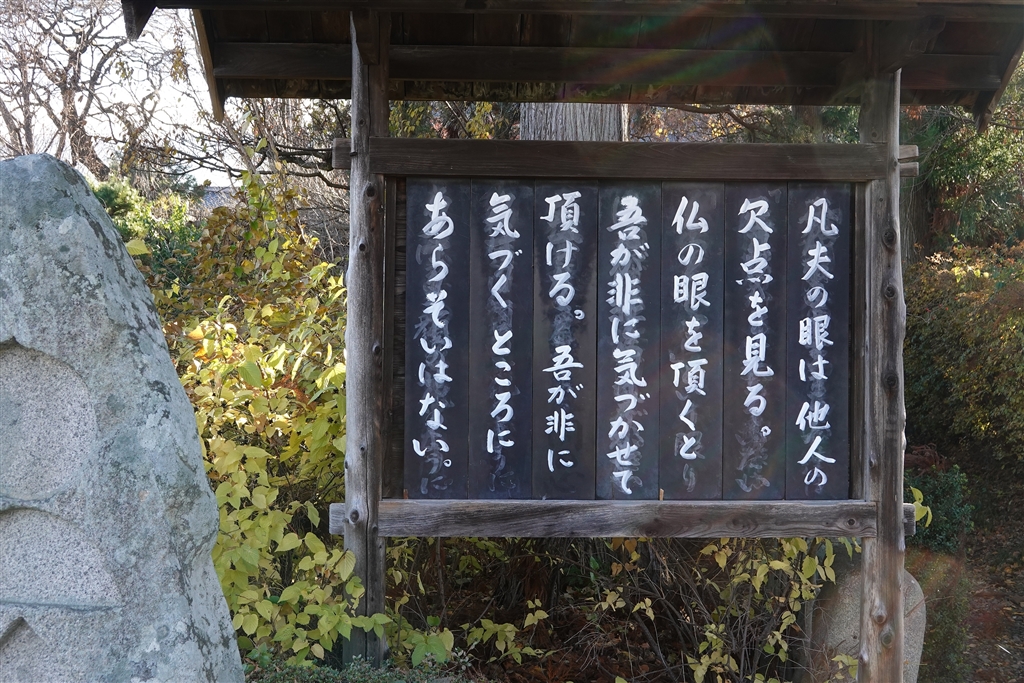 凡夫の眼は他人の
欠点を見る。
仏の眼を頂くと
吾が非に気づかせて
頂ける。吾が非に
気づくところに
あらそいはない。